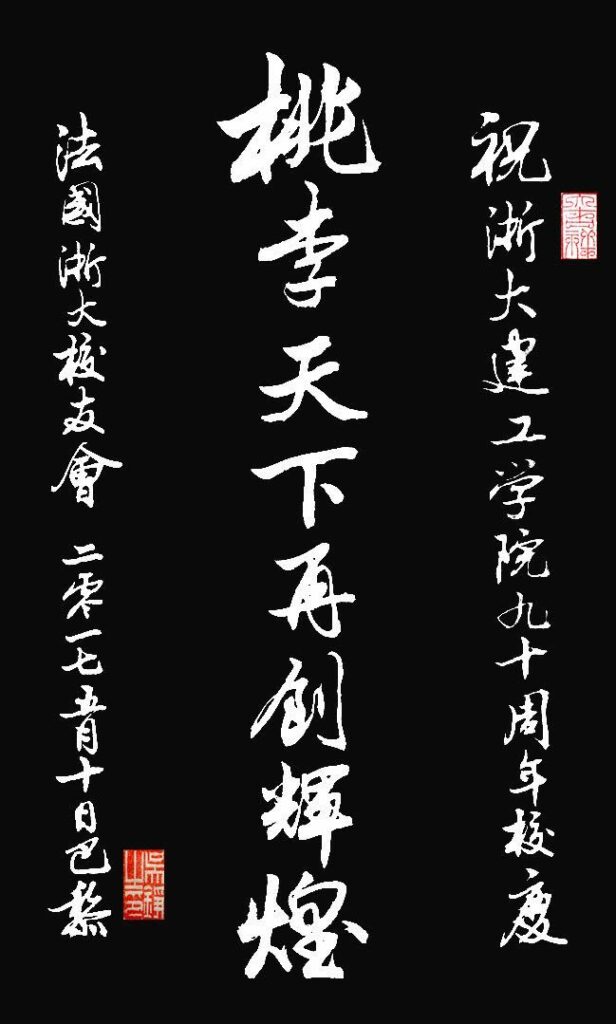 祝浙大建工学院九十周年校庆
桃李天下再创輝煌
法國浙大校友會 二零一七五月十日巴黎